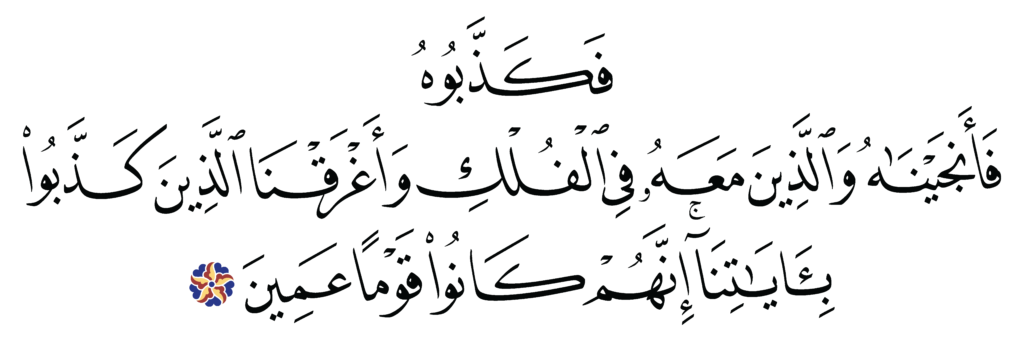 فَكَذَّبُوهُ
فَأَنجَيْنَٰهُ وَٱلَّذِينَ مَعَهُۥ فِى ٱلْفُلْكِ وَأَغْرَقْنَا ٱلَّذِينَ كَذَّبُوا۟
بِـَٔايَٰتِنَآ ۚ إِنَّهُمْ كَانُوا۟ قَوْمًا عَمِينَ